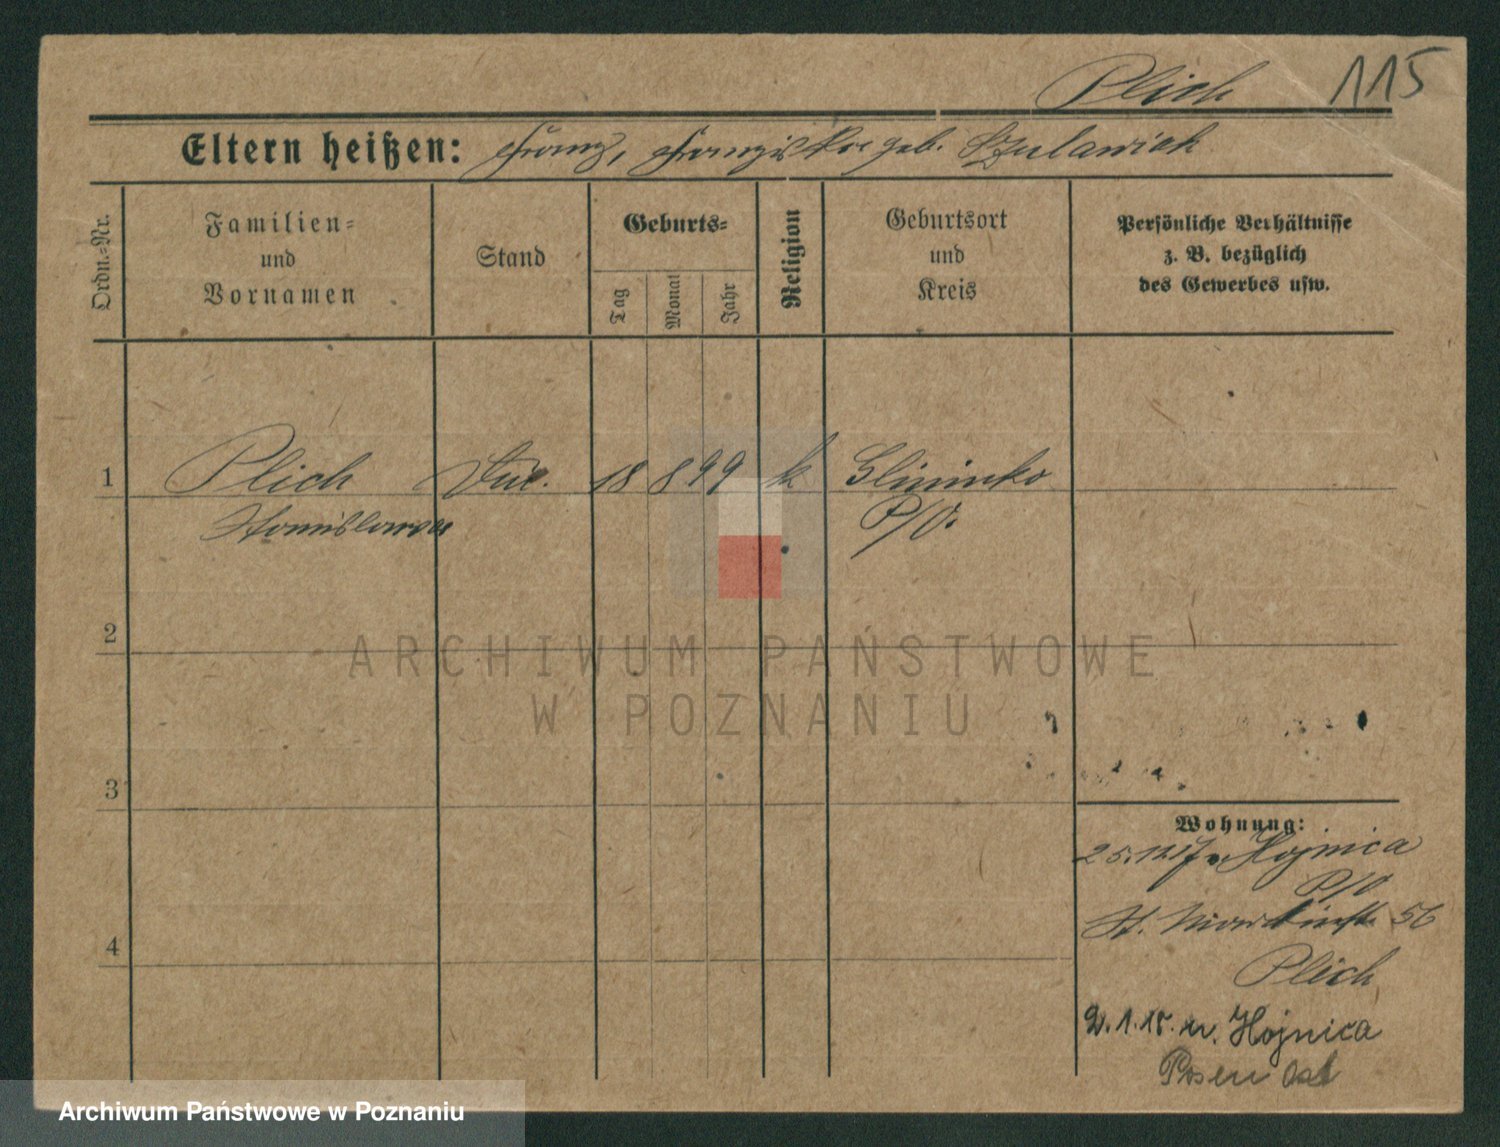 Plich 115
Eltern heißen: Franz, Franziska geb. Szulawiak
Ordn.=Nr.
Familien=
und
Vornamen
Stand
Geburts=
Tag
Monat
Jahr
Religion
Geburtsort
und
Kreis
Persönliche Verhältnisse
z. B. bezüglich
des Gewerbes usw.
1 Plich 18 8 99 k Glininko
Stanislawa P/O.
2
3
4
Wohnung:
25.12.17 Hojnica
P/O
St. Martinstr. 56
Plich
2.1.18. n. Hojnica
Posen Ost
ARCHIWUM PAŃSTWOWE
W POZNANIU
Archiwum Państwowe w Poznaniu